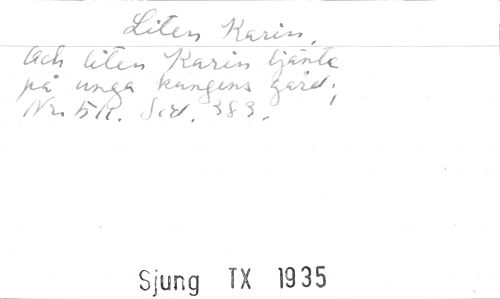 Liten Karin.
Och liten Karin tjänte
på unga kungens gård;
Nr. 511. Sid. 383.
Sjung TX 1935